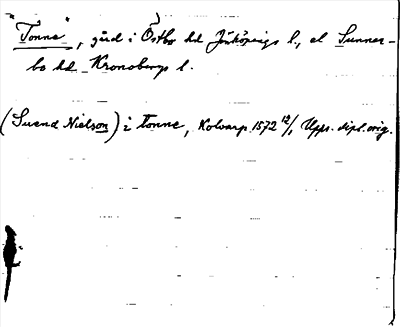 "Tonne", gård i Östbo hd Jönköpings l., el Sunner-
bo hd Kronobergs l.
(Suend Nielson) i Tonne, Kolvarp 1572 12/1, Upps. dipl. orig.